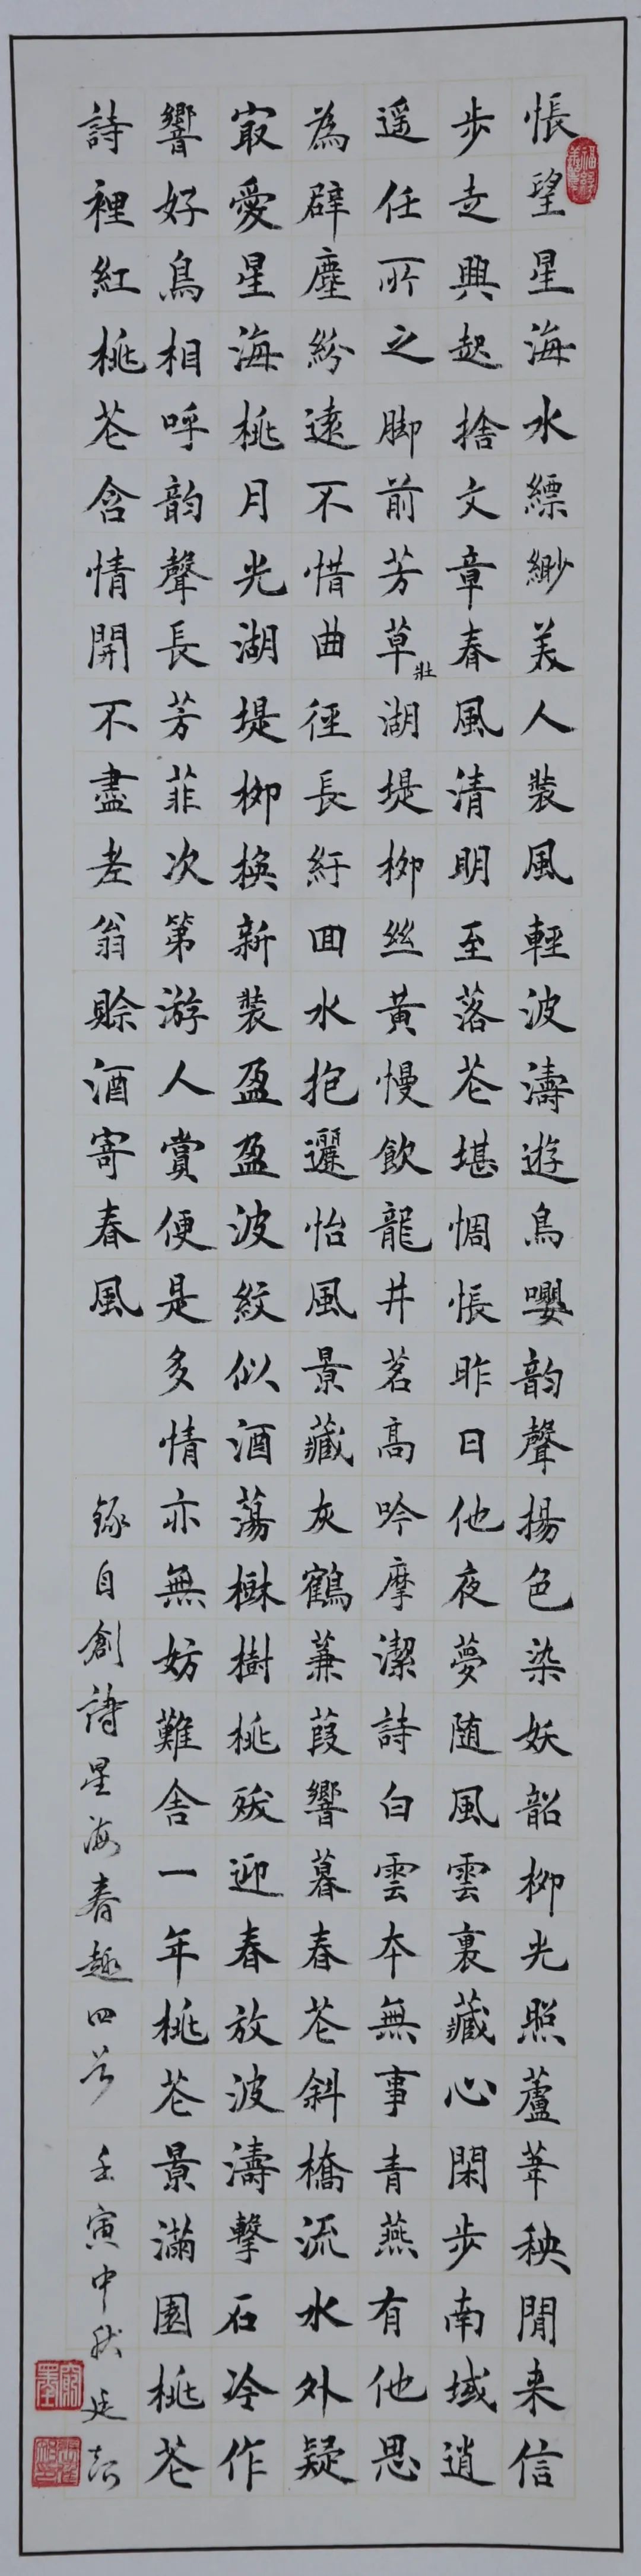 悵望星海水縹緲美人裝風輕波濤遊鳥嚶韵聲揚色染妖韶柳光照蘆葦秧閒来信
步走興起捨文章春風清明至落花堪惆悵昨日他夜夢随風雲裏藏心閑步南域逍
遥任所之脚前芳草壯湖堤柳丝黄慢飲龍井茗高吟摩潔詩白雲本無事青燕有他思
為辟塵紛遠不惜曲徑長紆回水抱邐怡風景藏灰鶴蒹葭響暮春花斜橋流水外疑
最愛星海桃月光湖堤柳换新裝盈盈波紋似酒蕩楙樹桃残迎春放波濤擊石冷作
響好鳥相呼韵聲長芳菲次第游人賞便是多情亦無妨難舍一年桃花景滿園桃花
詩裡紅桃花含情開不盡老翁賒酒寄春風 錄自創詩星海春趣四首 壬寅中秋